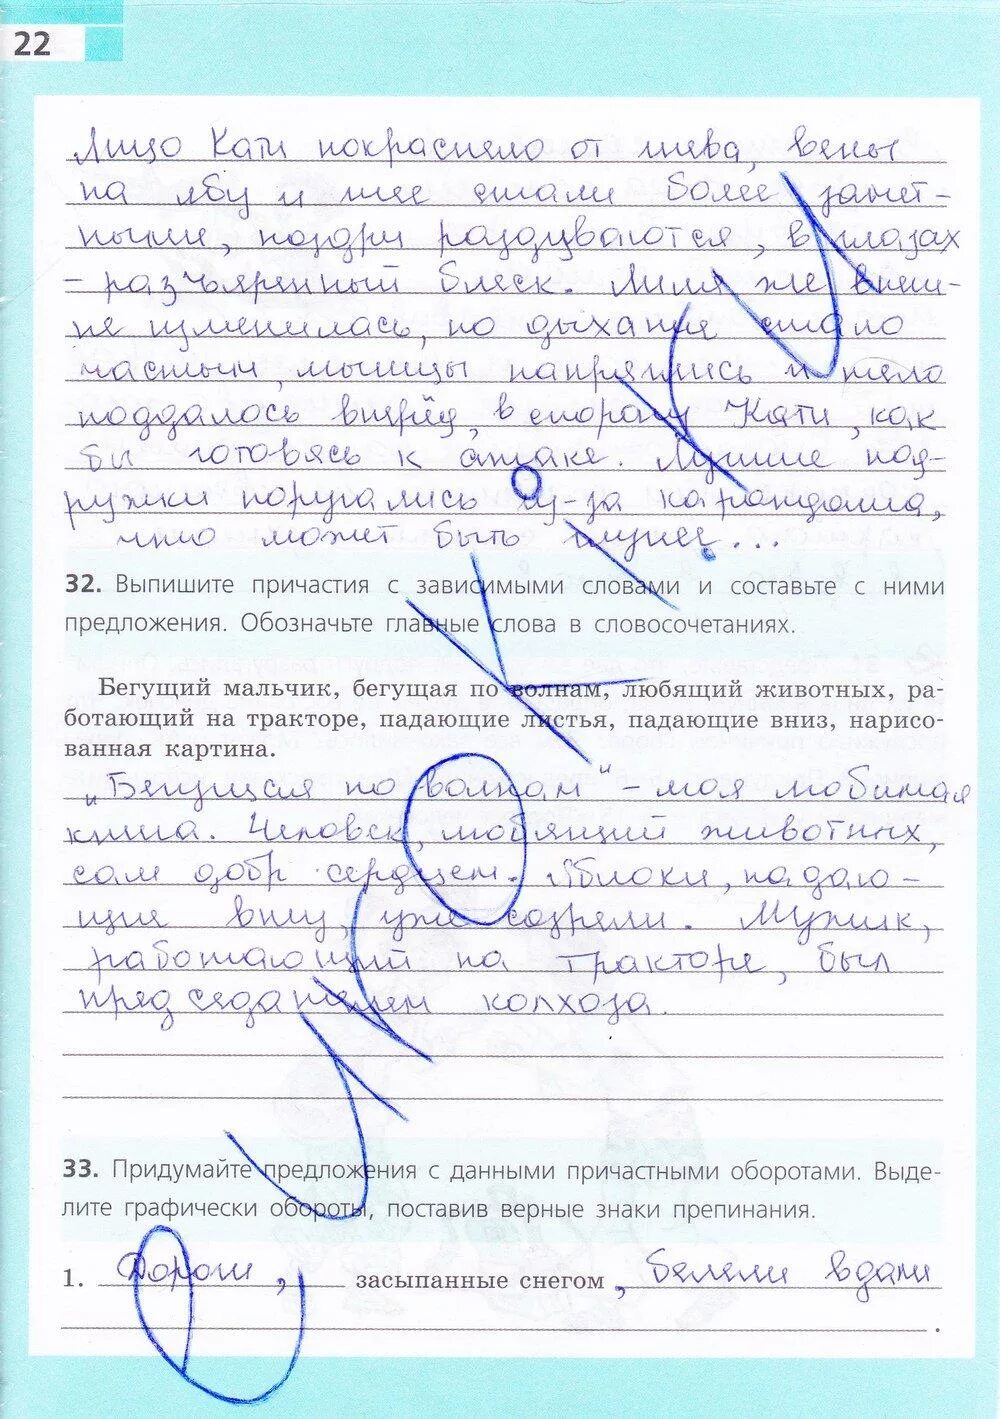 22
Лицо Кати покраснело от гнева, вены
на лбу и шее стали более замет-
ными, ноздри раздуваются, в глазах
– разъяренный блеск. Лиля же внеш-
не изменилась, но дыхание стало
частым, мышцы напряглись и тело
поддалось вперёд, в сторону Кати, как
бы готовясь к атаке. Лучшие под-
ружки поругались из-за карандаша,
что может быть глупее...
32. Выпишите причастия с зависимыми словами и составьте с ними
предложения. Обозначьте главные слова в словосочетаниях.
Бегущий мальчик, бегущая по волнам, любящий животных, ра-
ботающий на тракторе, падающие листья, падающие вниз, нарисо-
ванная картина.
„Бегущая по волнам“ – моя любимая
книга. Человек, любящий животных,
сам добр сердцем. Яблоки, падаю-
щие вниз, уже созрели. Мужик,
работающий на тракторе, был
председателем колхоза.
33. Придумайте предложения с данными причастными оборотами. Выде-
лите графически обороты, поставив верные знаки препинания.
1. Дороги, засыпанные снегом, белели вдали
.